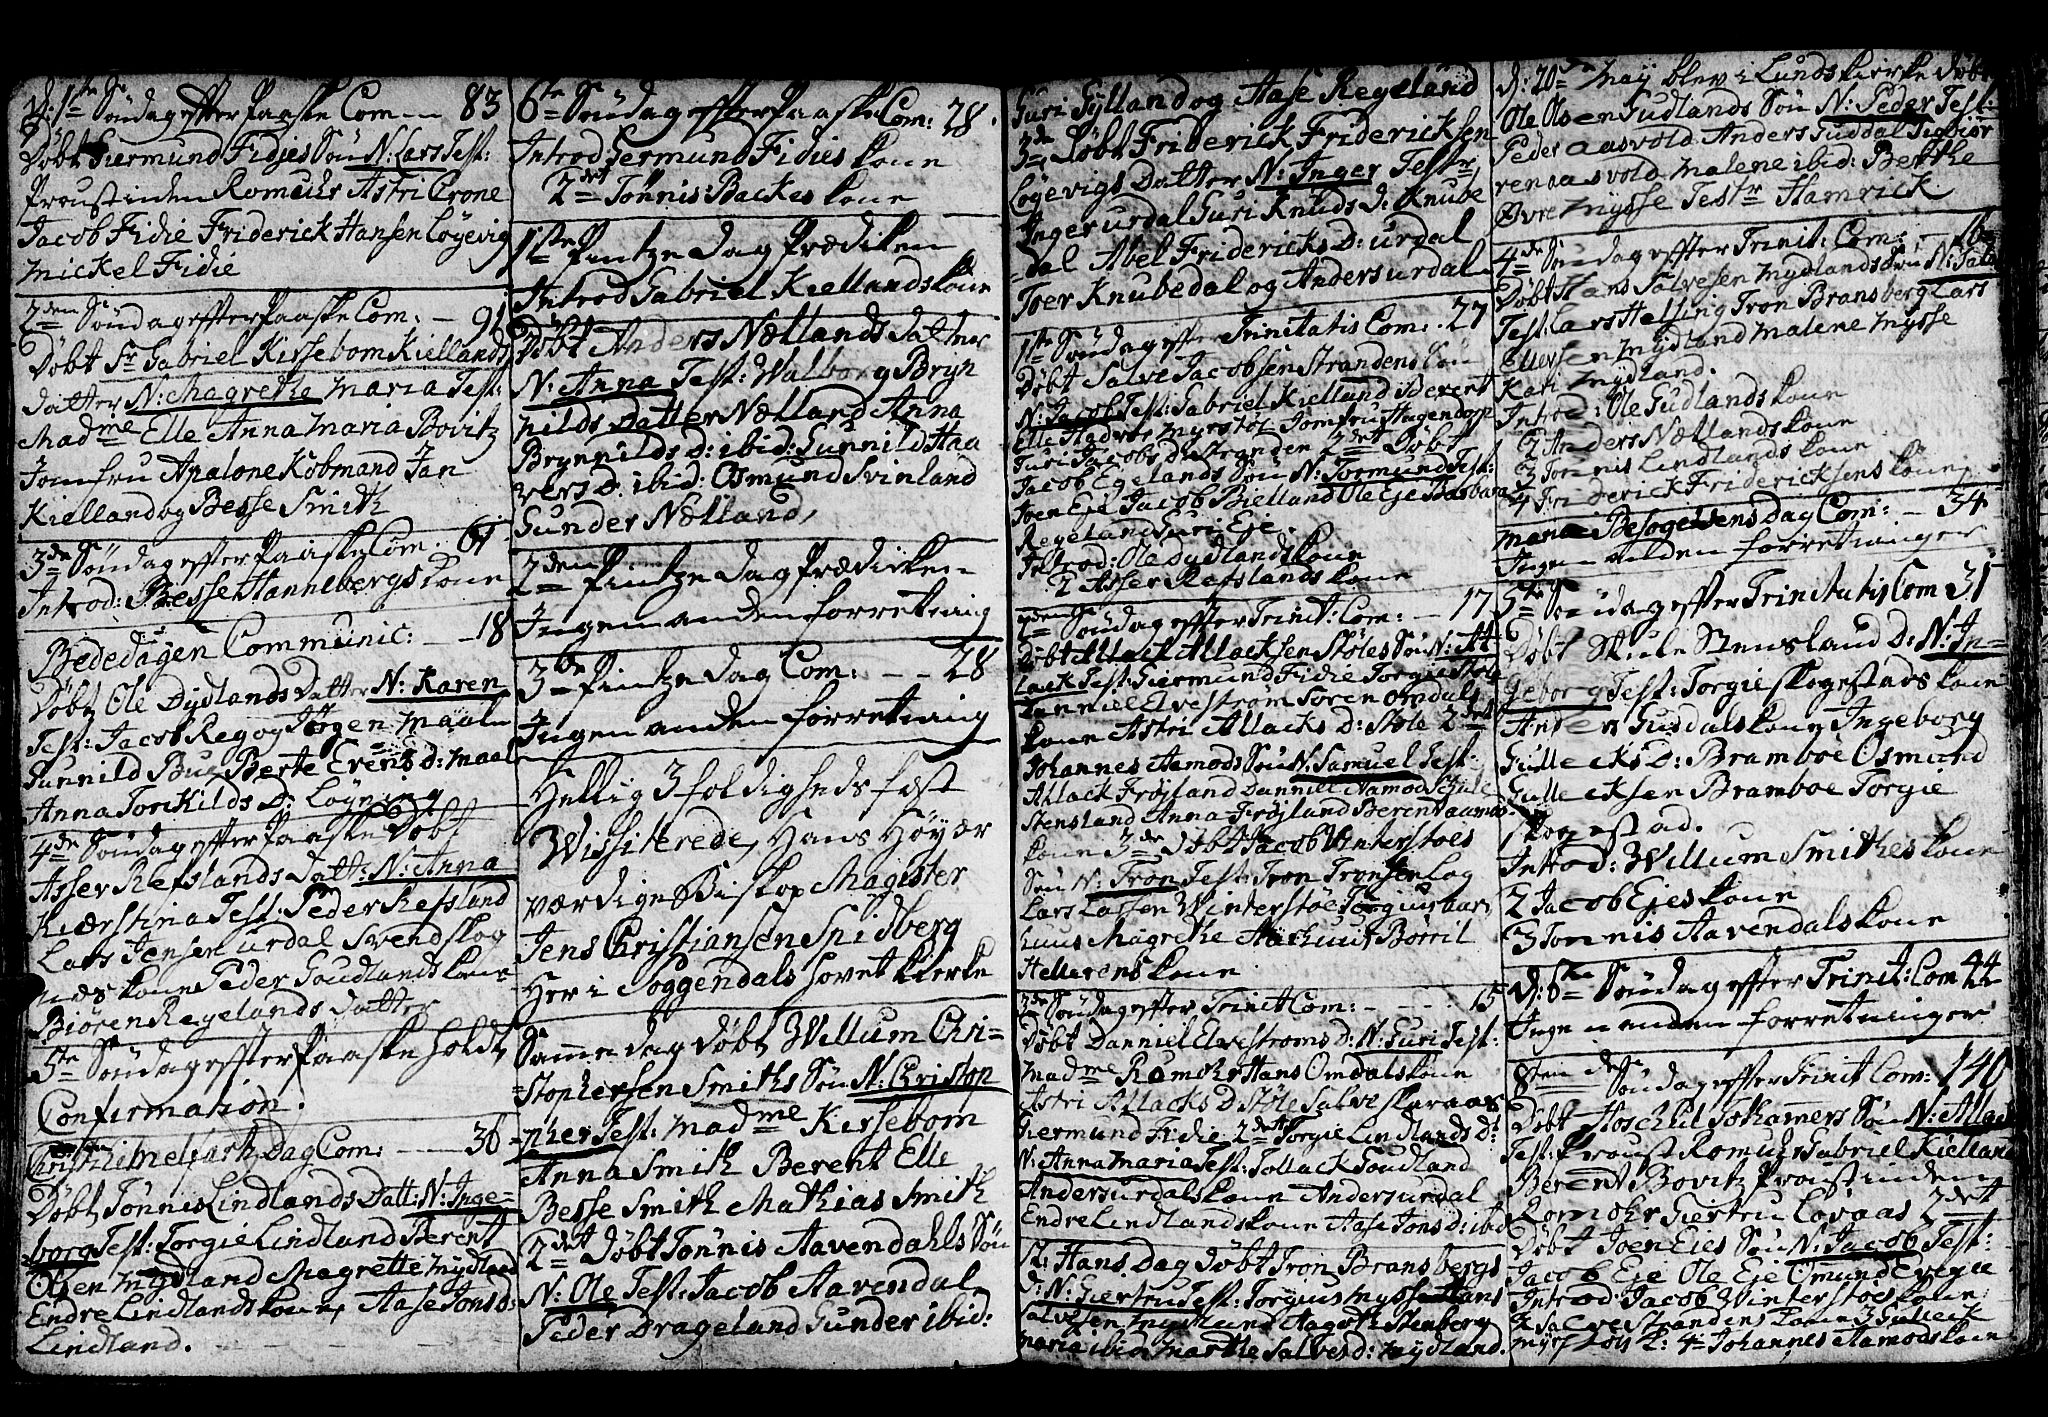 d: 1te S: Søndag effter Paaske Com — 83
Døbt Giermund Fidjes Søn N: Lars Test:
Proustinden Romuhr Astri Crone
Jacob Fidie Friderick Hansen Løyevig
Mickel Fidie
2den Søndag effter Paaske Com: — 91
Døbt Sr Gabriel Kirssebom Kiellands
datter N: Magrethe Maria Test:
Madme Elle Anna Maria Bovitz
Jomfru Apalone Kobmand Jan
Kielland og Besse Smith
3de Søndag effter Paaske Com. 61
Introd: Besse Hannebergs kone
Bededagen Communic: — 18
Døbt Ole Dydlands datter N: Karen
Test: Jacob Reg og Jørgen Maal
Gunnild Bug Berte Erens d: Maal
Anna Torkilds D: Løyning
4de Søndag effter Paaske Døbt
Asser Refslands Datt: N: Anna
Kierstina Test: Peder Refsland
Lars Jensen Urdal Svend Skog
Peder Goudlands kone
Biøren Regelands datter
5te Søndag effter Paaske holdt
Confirmation.
Christi Himelfarts Dag Com: — 36
Døbt Tønnes Lindlands Datt: N: Inge=
borg Test: Torgie Lindland Berent
Olsen Mydland Magrette Mydland
Endre Lindlands kone, Aase Jons d:
Lindland.
6te Søndag effter Paaske Com: 28.
Introd Germund Fidies kone
2det Tønnis Backes kone
1ste Pintze Dag Prædiken
Introd Gabriel Kiellands kone
Døbt Anders Nætlands datter
N: Anna Test: Walborg Bryn
hilds datter Nætland Anna
Brynnilds D: ibid: Gunnild Haa
vers D. ibid: Osmund Svinland
Gunder Nætland,
2den Pintze Dag Prædicken
Ingen anden forretning
3die Pintze Dag Com: — 28
Ingen anden forretning
Hellig 3foldigheds fæst
Wissiterede, Hans Høyær
værdige Biskop Magister
Jens Christiansen Spidberg
Her i Soggendals Hovet kierke
Samme dag døbt Willum Chri=
=stophersen Smiths Søn N: Christop
=pher Test: Madme Kirssebom
Anna Smith Berent Elle
Besse Smith Mathias Smith
2det Døbt Tønnis Aavendahls Søn
N: Ole Test: Jacob Aavendal
Peder Drageland Gunder ibid:
Guri Gylland og Aase Regeland
3de Døbt Friderick Fridericksen
Løyevigs Datter N: Inger Testr
Inger Urdal Guri Knuds D: Knube
=dal Abel Fridericks D: Urdal
Toer Knubedal og Anders Urdal
1ste Søndag effter Trinitatis Com: 27
Døbt Salve Jacobsen Strandens Søn
N: Jacob Test: Gabriel Kielland Berent
Elle Myrstøl Jomfru Hagendorp
Guri Jacobs D Stranden 2det Døbt
Jacob Egelands Søn N: Tormund Test:
Joen Eje Jacob Bielland Ole Eje Barbara
Regeland Guri Eje.
Introd: Ole Dydlands kone
2 Asser Refslands kone
2den Søndag effter Trinit: Com: — 17
Døbt Allack Allacksen Støles Søn N: At
lack Test: Giermund Fidie Torgie Støle
Danniel Elvestrøm Søren Omdals
kone Astri Allacks D: Støle 2det
Johannes Aamods Søn N: Samuel Test:
Atlack Frøjland Danniel Aamod Skule
Stensland Anna Frøjland Berent Aamods
kone 3de Døbt Jacob Vinterstøes
Søn N: Tron Test: Tron Tronsen Log
Lars Larsen Winterstøe Torgius aar
huus Magrethe Borril
Hellerens kone
3de Søndag effter Trinit Com: — 15
Døbt Danniel Elvestroms D: N: Guri Test:
Madme Romohr Hans Omdals kone
Astri Allacks D Støle Salve Skaraas
Giermund Fidie 2det Torgie Lindlands D:
N: Anna Maria Test: Tollack Goudland
Anders Urdals kone Anders Urdal
Endre Lindlands kone Aase Jons d: ibid
St: Hans Dag døbt Tron Bransbergs
D: N: Giertru Test: Torgius Mysse Hans
Salvesen Mydland Aagoth Stenberg
Maria ibid Marthe Salves d: Mydland.
d: 20de Maij blev i Lunds kierke døbt
Ole Olsen Gudlands Søn N: Peder Test:
Peder Aasvold Anders Guddal Sigbiør
ren Aasvold Malene ibid: Berthe
Øvre Mysse Testr Hamrick
4de Søndag effter Trinit: Com:
Døbt Hans Salvesen Mydlands Søn N: Salve
Test: Lars Helsing Tron Bransberg Lars
Ellevsen Mydland Malene Mysse
Kari Mydland.
Introd: Ole Gudlands kone
2 Anders Nætlands kone
3 Tønnis Lindlands kone
4 Friderick Fridericksens kone
Mariæ Besøgelsens Dag Com: — 34
Ingen anden forretninger
5te Søndag effter Trinitatis Com 31
Døbt Skule Stensland D: N: In=
geborg Test: Torgie Skogestads kone
Anders Gusdals kone Ingeborg
Gullecks D: Bramboe Osmund
Gullecksen Bramboe Torgie
Skogestad.
Introd: Willum Smithes kone
2 Jacob Ejes kone
3 Tønnis Aavendals kone
d: 6te Søndag effter Trinit: Com 44
Ingen anden forretninger
8de Søndag effter Trinit Com: 140
Døbt Hoschul Tothamers Søn N: Allac
Test: Proust Romuhr Gabriel Kielland
Berent Bovitz Proustinden
Romohr Giertru Lovaas 2det
Døbt Joen Ejes Søn N: Jacob Test:
Jacob Eje Ole Eje Omund Evegie
Introd: Jacob Winterstøes kone
2 Salve Strandens kone 3 Gulleck
Myrstøls k: 4 Johannes Aamods kone